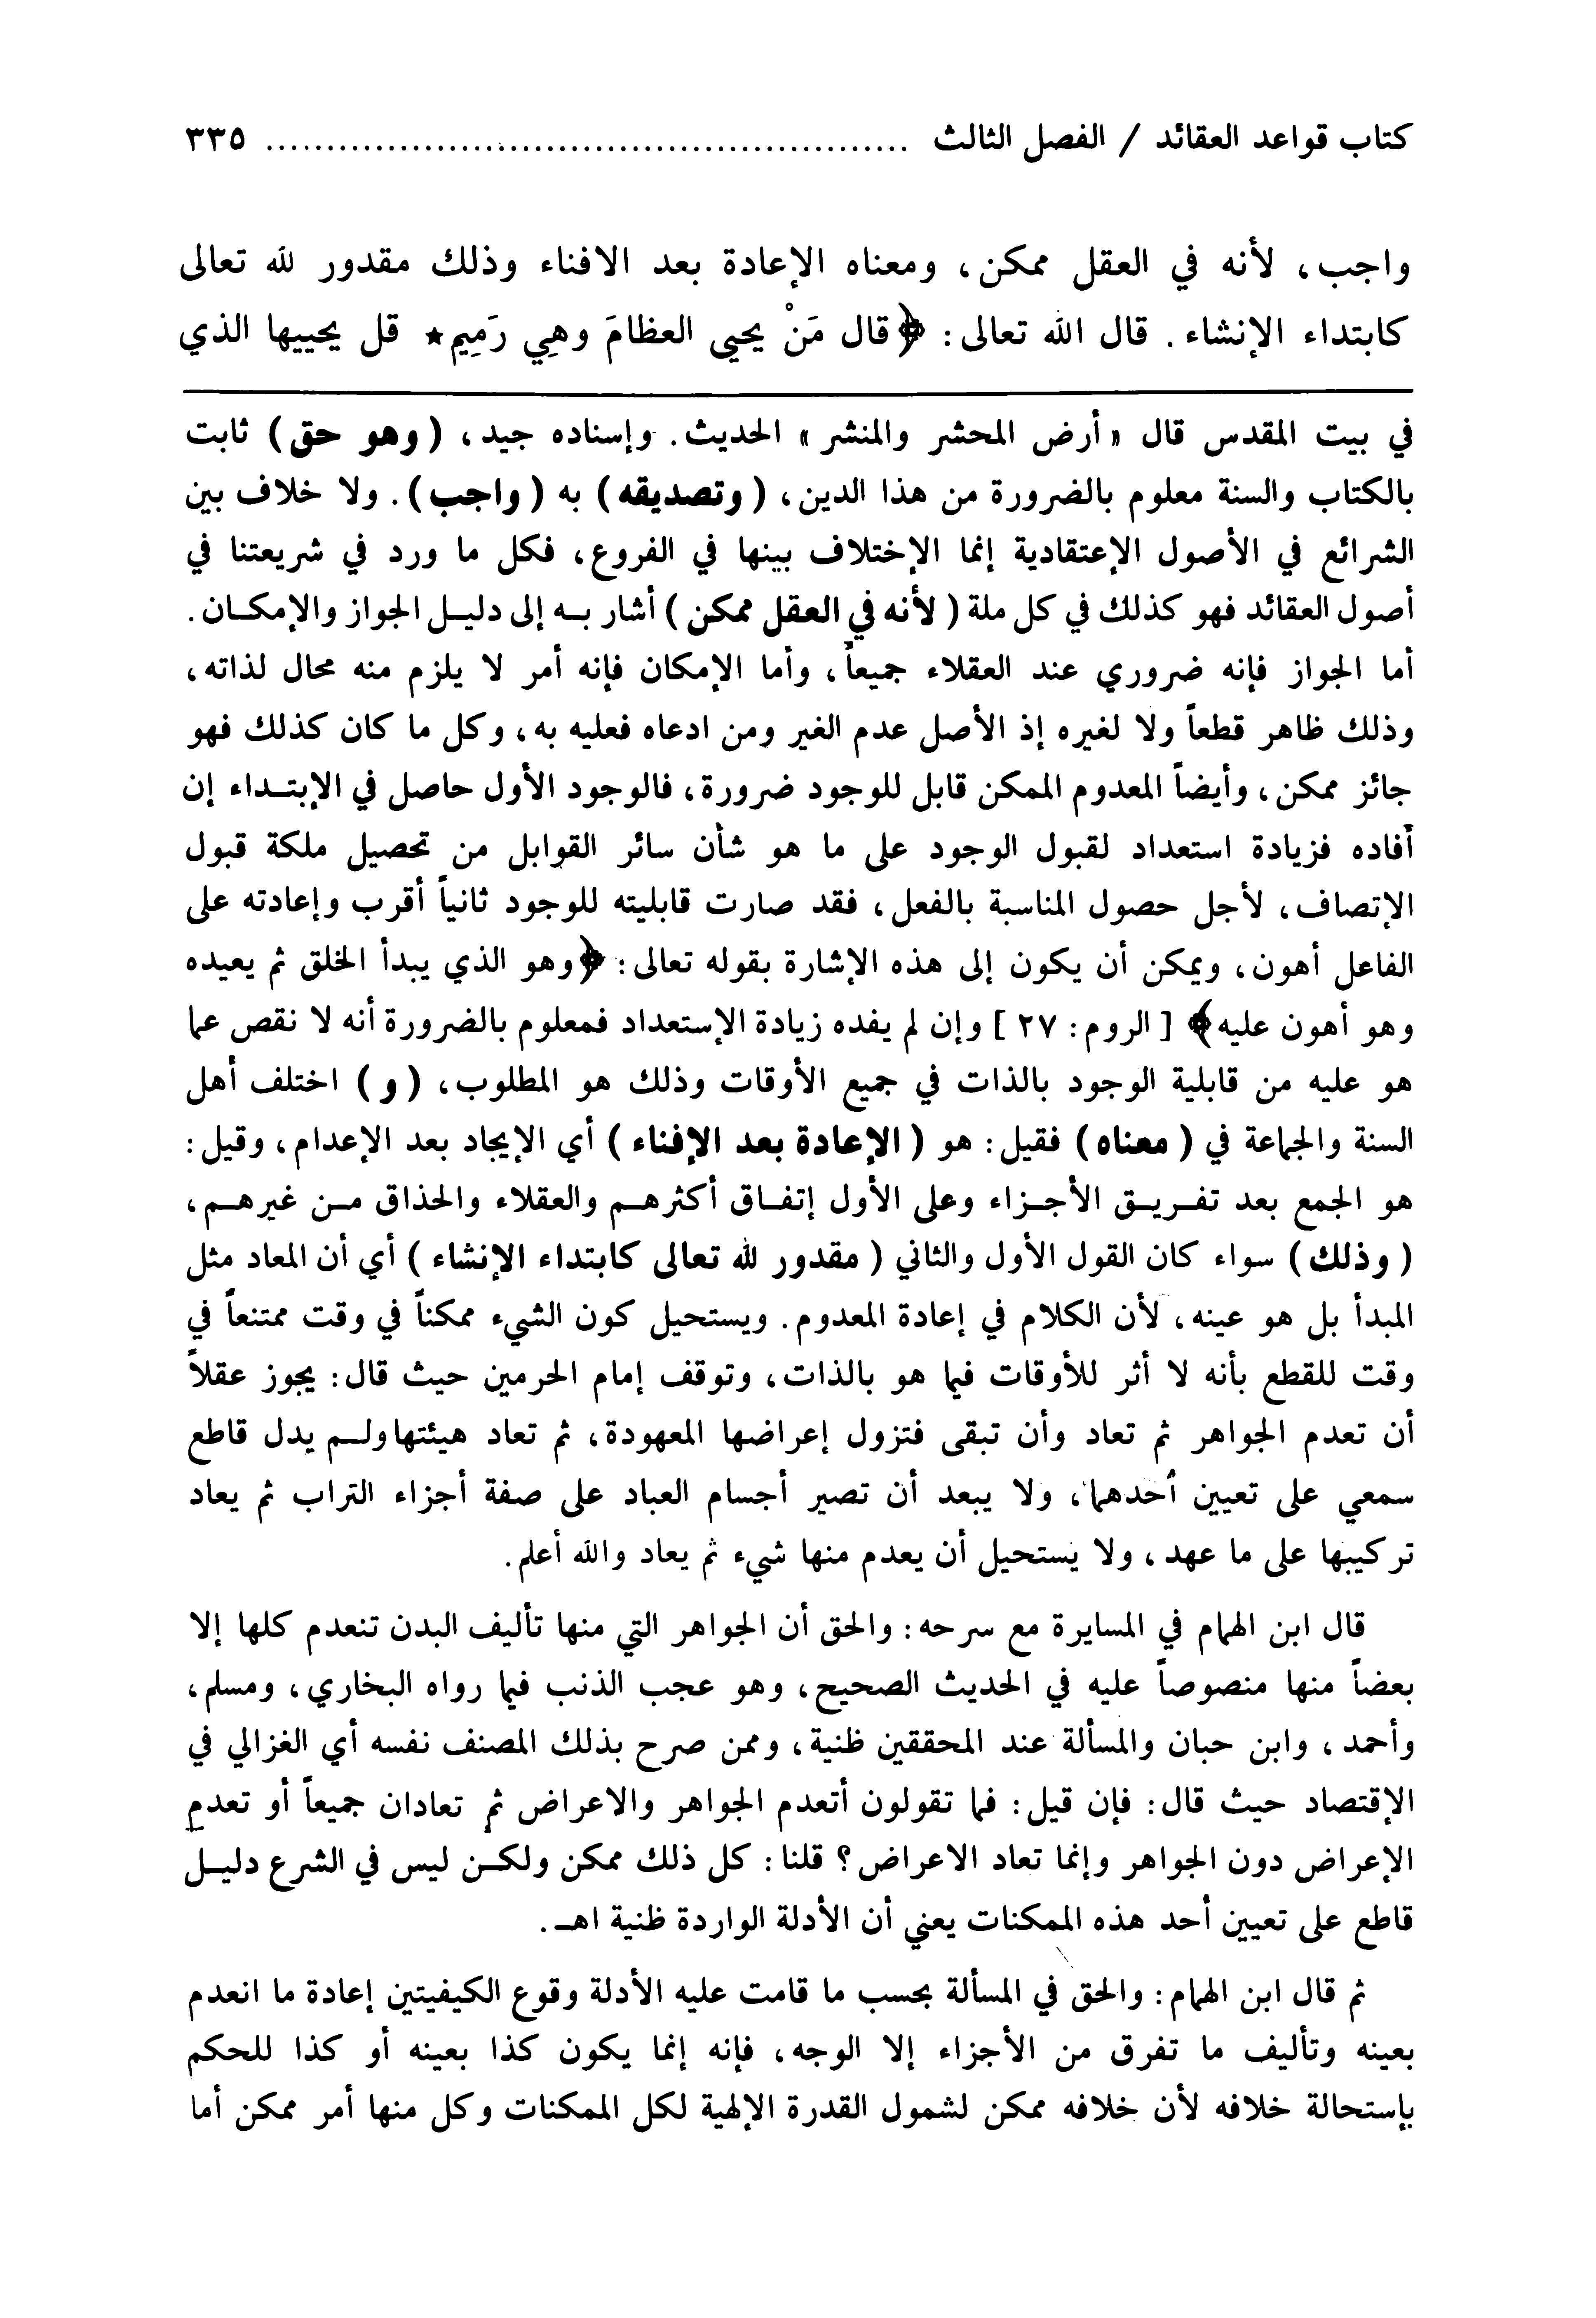 كتاب قواعد العقائد / الفصل الثالث ..................................................... ٣٣٥
واجب، لأنه في العقل ممكن، ومعناه الإعادة بعد الافناء وذلك مقدور لله تعالى
كابتداء الإنشاء. قال الله تعالى: ﴿قال مَنْ يحيي العظامَ وهِي رَمِيم★ قل يحييها الذي
في بيت المقدس قال «أرض المحشر والمنشر» الحديث. وإسناده جيد، (وهو حق) ثابت
بالكتاب والسنة معلوم بالضرورة من هذا الدين، (وتصديقه) به (واجب). ولا خلاف بين
الشرائع في الأصول الإعتقادية إنما الإختلاف بينها في الفروع، فكل ما ورد في شريعتنا في
أصول العقائد فهو كذلك في كل ملة (لأنه في العقل ممكن) أشار بـه إلى دليـل الجواز والإمكـان.
أما الجواز فإنه ضروري عند العقلاء جميعاً، وأما الإمكان فإنه أمر لا يلزم منه محال لذاته،
وذلك ظاهر قطعاً ولا لغيره إذ الأصل عدم الغير ومن ادعاه فعليه به، وكل ما كان كذلك فهو
جائز ممكن، وأيضاً المعدوم الممكن قابل للوجود ضرورة، فالوجود الأول حاصل في الإبتـداء إن
أفاده فزيادة استعداد لقبول الوجود على ما هو شأن سائر القوابل من تحصيل ملكة قبول
الإتصاف، لأجل حصول المناسبة بالفعل، فقد صارت قابليته للوجود ثانياً أقرب وإعادته على
الفاعل أهون، ويمكن أن يكون إلى هذه الإشارة بقوله تعالى: ﴿وهو الذي يبدأ الخلق ثم يعيده
وهو أهون عليه﴾ [الروم: ٢٧] وإن لم يفده زيادة الإستعداد فمعلوم بالضرورة أنه لا نقص عما
هو عليه من قابلية الوجود بالذات في جميع الأوقات وذلك هو المطلوب، (و) اختلف أهل
السنة والجماعة في (معناه) فقيل: هو (الإعادة بعد الإفناء) أي الإيجاد بعد الإعدام، وقيل:
هو الجمع بعد تفـريـق الأجـزاء وعلى الأول إتفـاق أكثرهـم والعقلاء والحذاق مـن غيرهـم،
(وذلك) سواء كان القول الأول والثاني (مقدور لله تعالى كابتداء الإنشاء) أي أن المعاد مثل
المبدأ بل هو عينه، لأن الكلام في إعادة المعدوم. ويستحيل كون الشيء ممكناً في وقت ممتنعاً في
وقت للقطع بأنه لا أثر للأوقات فيما هو بالذات، وتوقف إمام الحرمين حيث قال: يجوز عقلاً
أن تعدم الجواهر ثم تعاد وأن تبقى فتزول إعراضها المعهودة، ثم تعاد هيئتها ولـم يدل قاطع
سمعي على تعيين أحدهما، ولا يبعد أن تصير أجسام العباد على صفة أجزاء التراب ثم يعاد
تركيبها على ما عهد، ولا يستحيل أن يعدم منها شيء ثم يعاد والله أعلم.
قال ابن الهمام في المسايرة مع سرحه: والحق أن الجواهر التي منها تأليف البدن تنعدم كلها إلا
بعضاً منها منصوصاً عليه في الحديث الصحيح، وهو عجب الذنب فيما رواه البخاري، ومسلم،
وأحمد، وابن حبان والمسألة عند المحققين ظنية، وممن صرح بذلك المصنف نفسه أي الغزالي في
الإقتصاد حيث قال: فإن قيل: فما تقولون أتعدم الجواهر والاعراض ثم تعادان جميعاً أو تعدم
الإعراض دون الجواهر وإنما تعاد الاعراض؟ قلنا: كل ذلك ممكن ولكـن ليس في الشرع دليـل
قاطع على تعيين أحد هذه الممكنات يعني أن الأدلة الواردة ظنية اهـ.
ثم قال ابن الهمام: والحق في المسألة بحسب ما قامت عليه الأدلة وقوع الكيفيتين إعادة ما انعدم
بعينه وتأليف ما تفرق من الأجزاء إلا الوجه، فإنه إنما يكون كذا بعينه أو كذا للحكم
بإستحالة خلافه لأن خلافه ممكن لشمول القدرة الإلهية لكل الممكنات وكل منها أمر ممكن أما